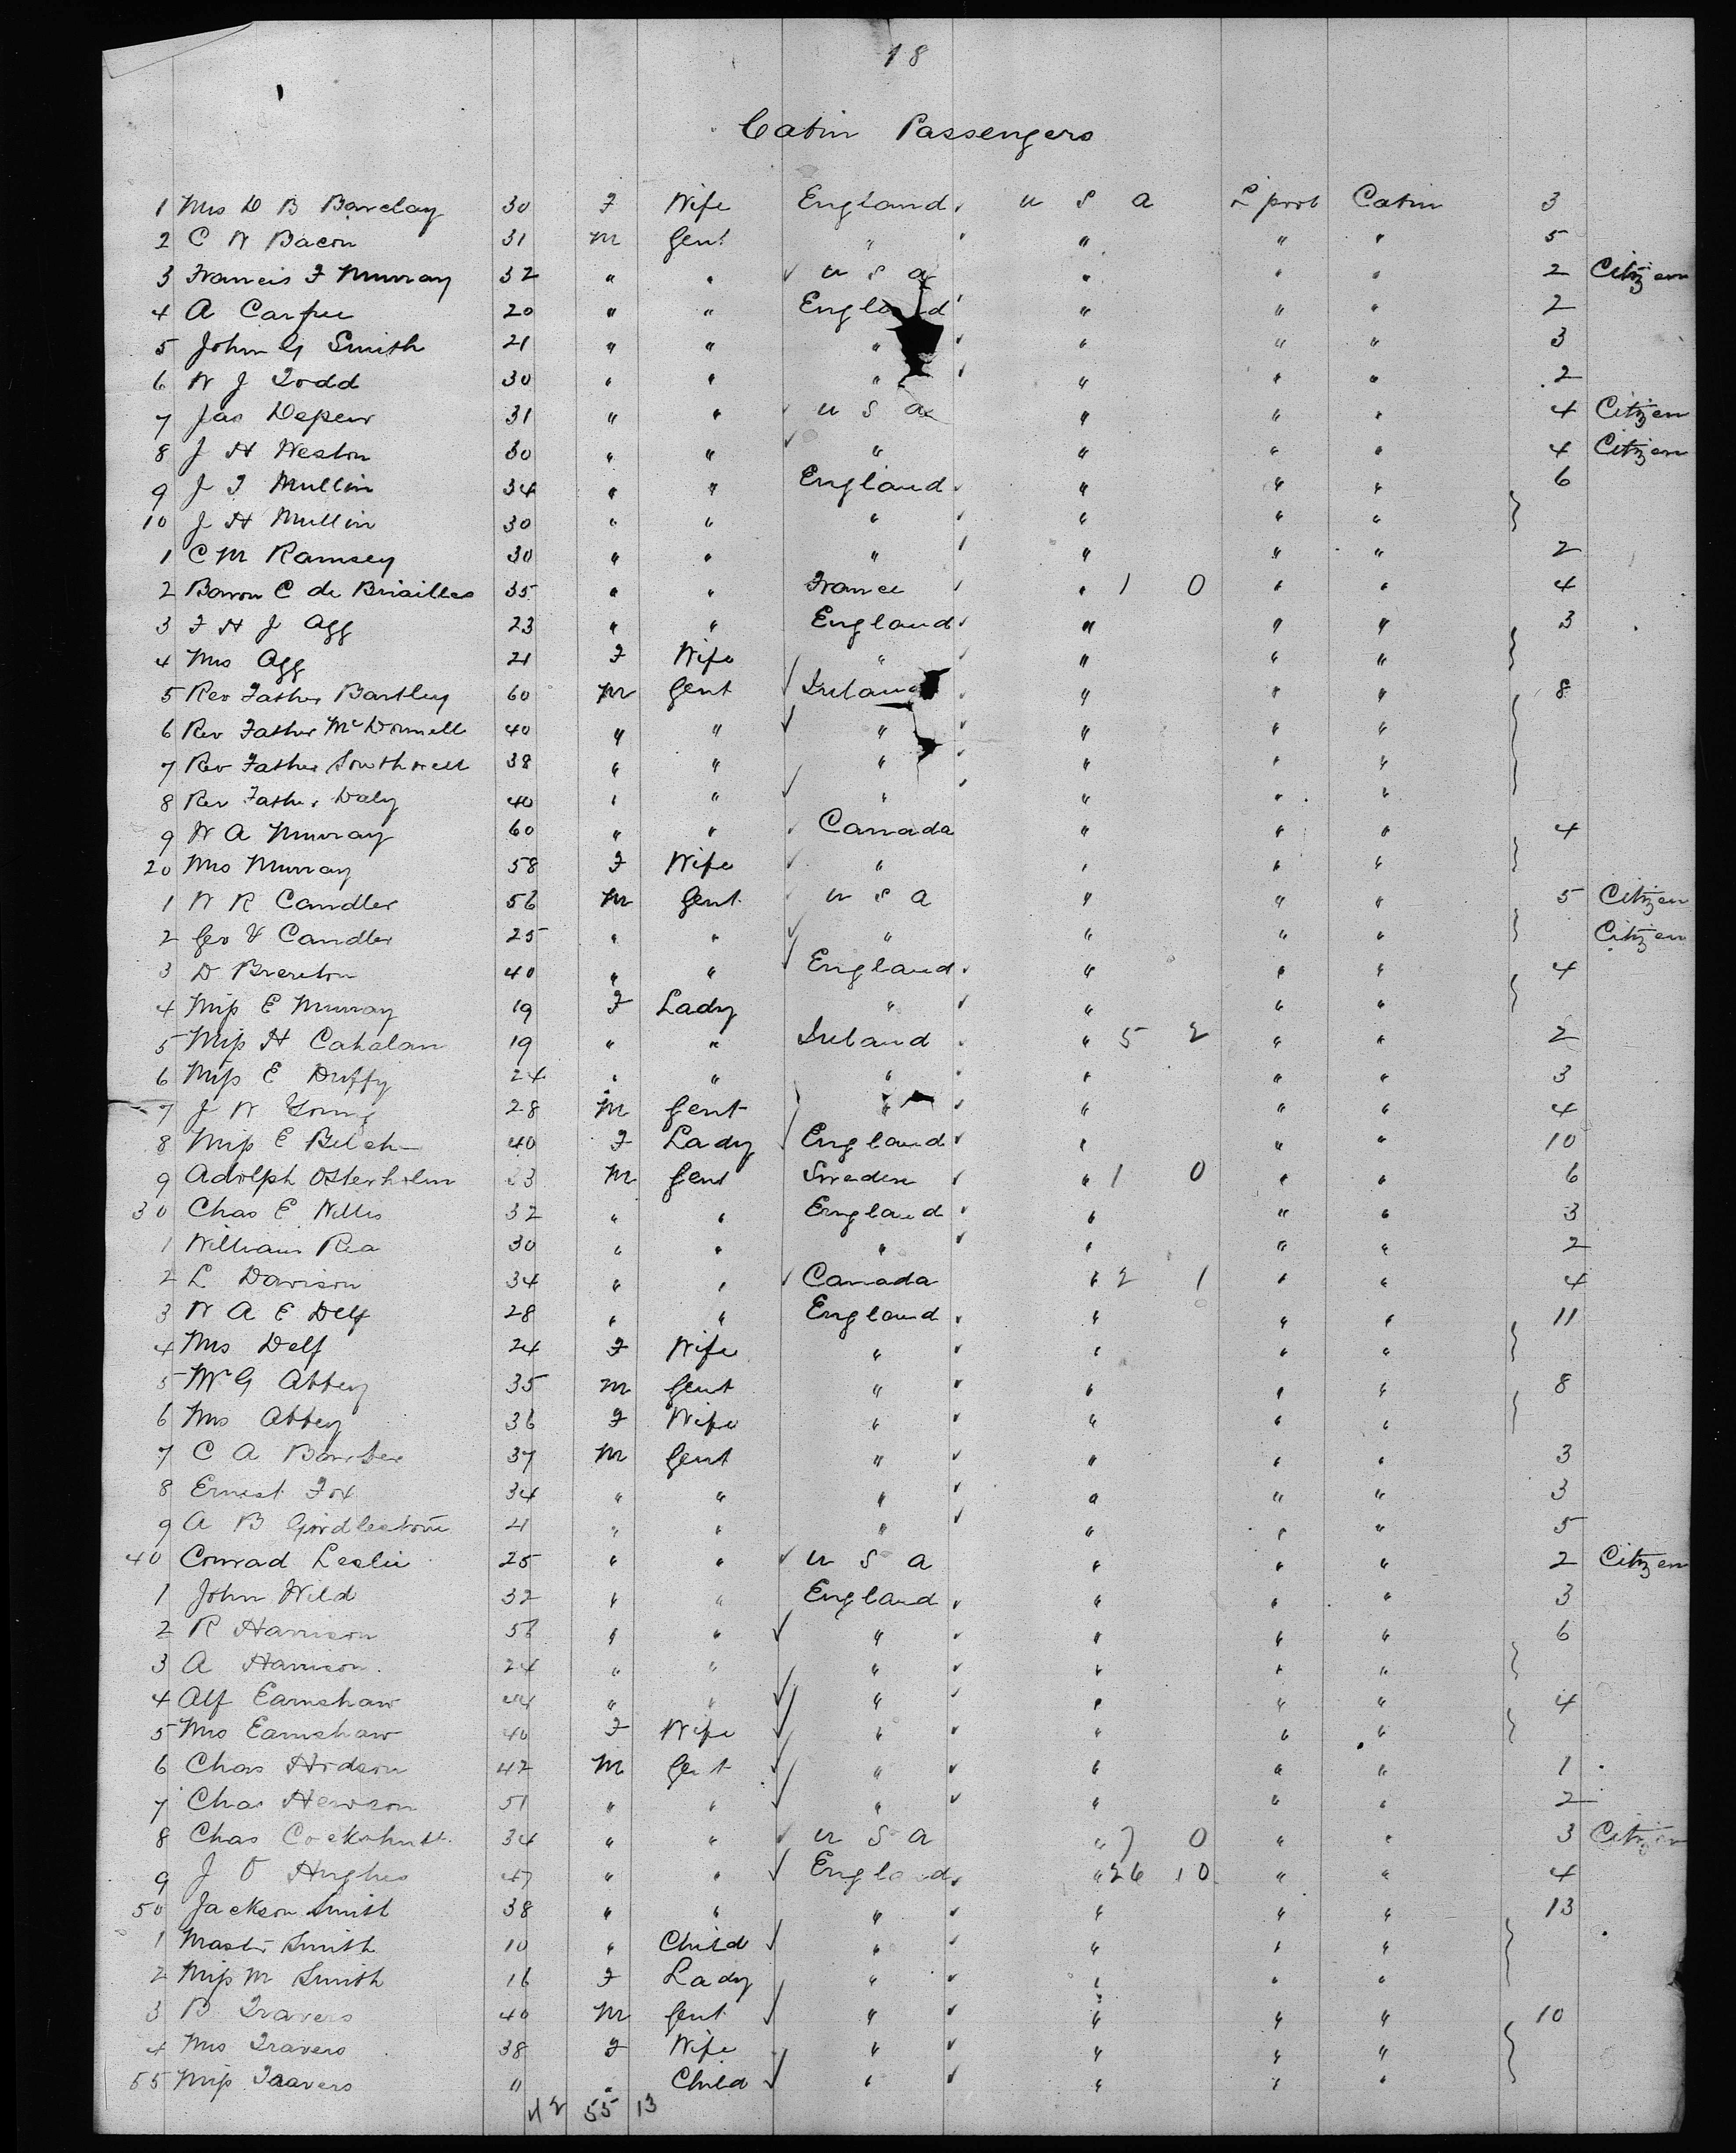 18
Cabin Passengers
1 Mrs D B Barclay 30 F Wife England U S A L'pool Cabin 3
2 C W Bacon 31 M Gent " " " " 5
3 Francis F Murray 32 " " U S A " " " 2 Citizen
4 A Carpue 20 " " England " " " 2
5 John G Smith 21 " " " " " " 3
6 W J Todd 30 " " " " " " 2
7 Jas Depew 31 " " U S A " " " 4 Citizen
8 J H Weston 30 " " " " " " 4 Citizen
9 J T Mullin 34 " " England " " " 6
10 J H Mullin 30 " " " " " "
1 C M Ramsey 30 " " " " " " 2
2 Baron C de Briailles 35 " " France " 1 0 " " 4
3 F H J Agg 23 " " England " " " 3
4 Mrs Agg 21 F Wife " " " "
5 Rev Father Bartley 60 M Gent Ireland " " " 8
6 Rev Father McDonnell 40 " " " " " "
7 Rev Father Southwell 38 " " " " " "
8 Rev Father Daly 40 " " " " " "
9 W A Murray 60 " " Canada " " " 4
20 Mrs Murray 58 F Wife " " " "
1 W R Candler 56 M Gent U S A " " " 5 Citizen
2 Geo V Candler 25 " " " " " " Citizen
3 D Brereton 40 " " England " " " 4
4 Miss E Murray 19 F Lady " " " "
5 Miss H Cahalan 19 " " Ireland " 5 2 " " 2
6 Miss E Duffy 24 " " " " " " 3
7 J W Young 28 M Gent " " " " 4
8 Miss E Belch 40 F Lady England " " " 10
9 Adolph Osterholm 23 M Gent Sweden " 1 0 " " 6
30 Chas E Willis 32 " " England " " " 3
1 William Rea 30 " " " " " " 2
2 L Davison 34 " " Canada " 2 1 " " 4
3 W A E Delf 28 " " England " " " 11
4 Mrs Delf 24 F Wife " " " "
5 Mr G Abbey 35 M Gent " " " " 8
6 Mrs Abbey 36 F Wife " " " "
7 C A Barber 37 M Gent " " " " 3
8 Ernest Fox 34 " " " " " " 3
9 A B Girdlestone 21 " " " " " " 5
40 Conrad Leslie 25 " " U S A " " " 2 Citizen
1 John Wild 32 " " England " " " 3
2 R Harrison 56 " " " " " " 6
3 A Harrison 24 " " " " " "
4 Alf Earnshaw 44 " " " " " " 4
5 Mrs Earnshaw 40 F Wife " " " "
6 Chas Hodson 42 M Gent " " " " 1
7 Chas Hewson 51 " " " " " " 2
8 Chas Cockshutt 34 " " U S A " 7 0 " " 3 Citizen
9 J O Hughes 47 " " England " 26 10 " " 4
50 Jackson Smith 38 " " " " " " 13
1 Master Smith 10 " Child " " " "
2 Miss M Smith 16 F Lady " " " "
3 B Travers 40 M Gent " " " " 10
4 Mrs Travers 38 F Wife " " " "
55 Miss Travers 11 " Child " " " "
42 55 13